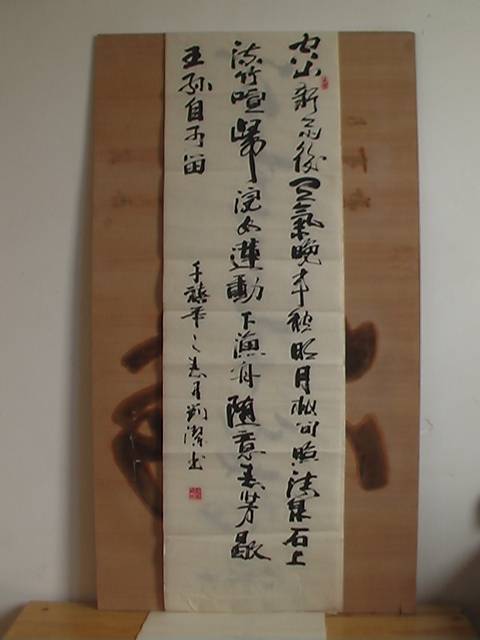 空山新雨後天氣晚来秋明月松间照清泉石上
流竹喧歸浣女蓮動下漁舟隨意春芳歇
王孫自可留
千禧年之春月刘潔书